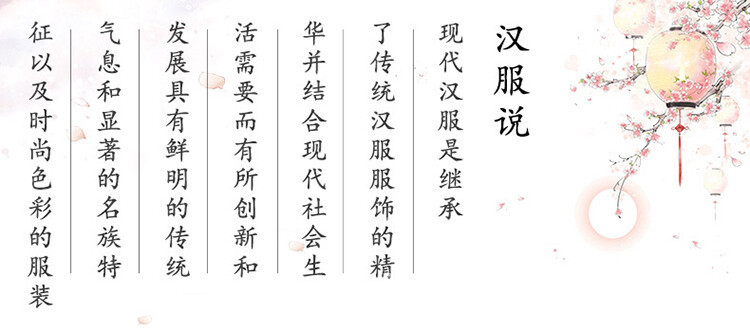 汉服说
现代汉服是继承
了传统汉服服饰的精
华并结合现代社会生
活需要而有所创新和
发展具有鲜明的传统
气息和显著的名族特
征以及时尚色彩的服装